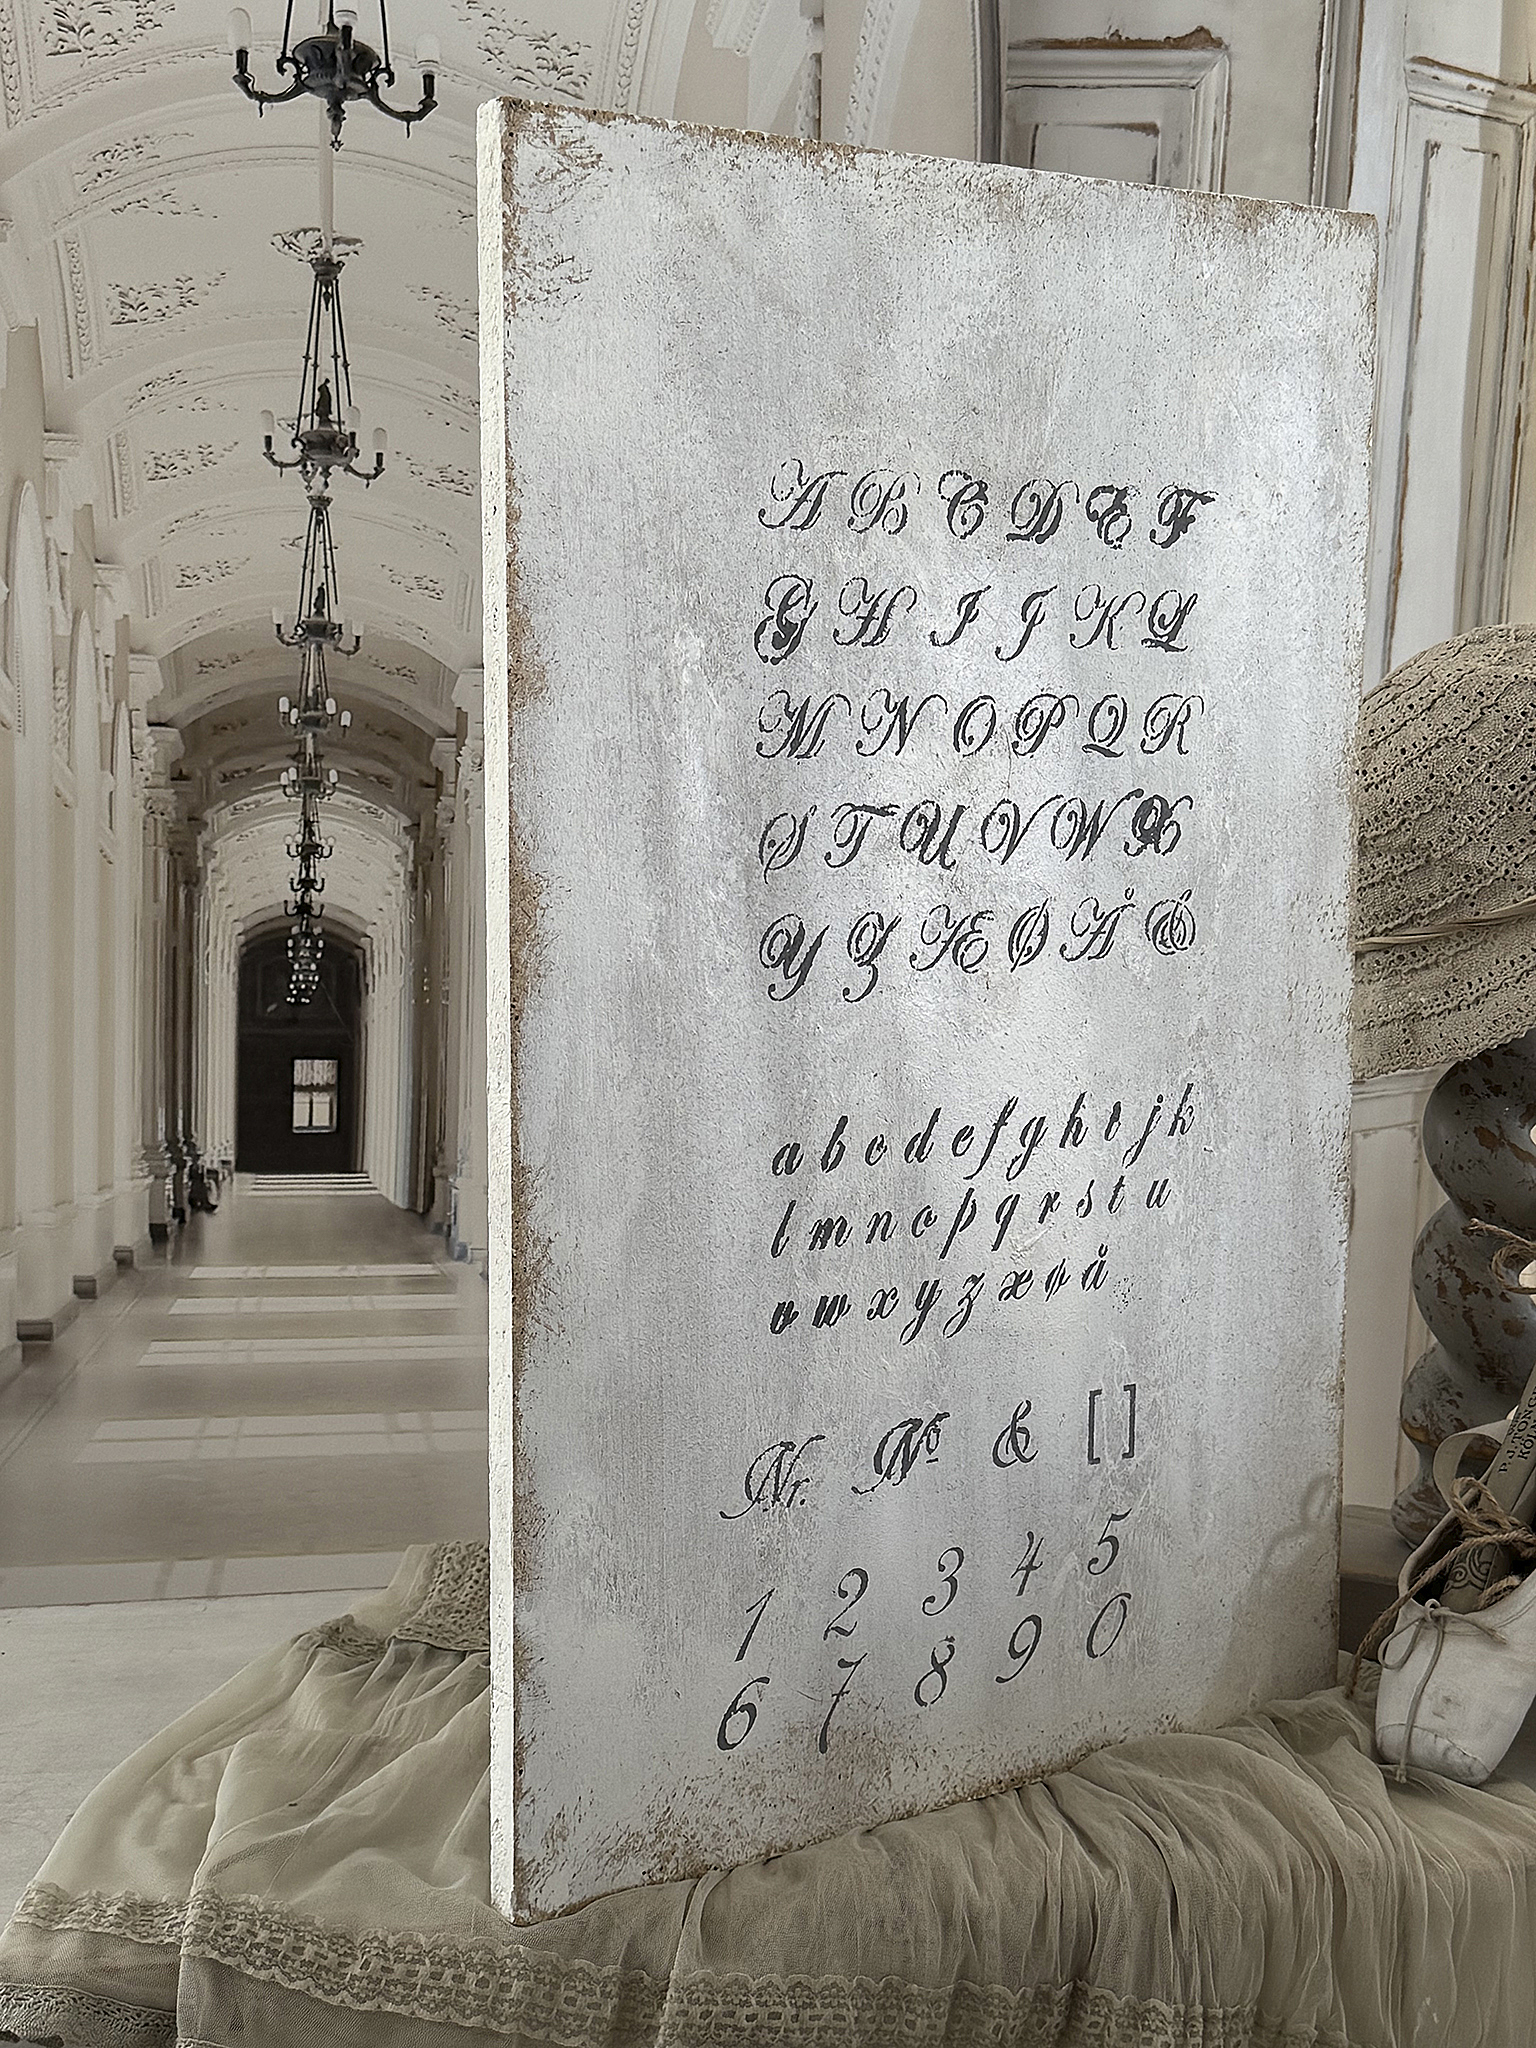 A B C D E F
G H I J K L
M N O P Q R
S T U V W X
Y Z Æ Ø Å &
a b c d e f g h i j k
l m n o p q r s t u
v w x y z æ ø å
Nr. Nº & [ ]
1 2 3 4 5
6 7 8 9 0
KÖLN